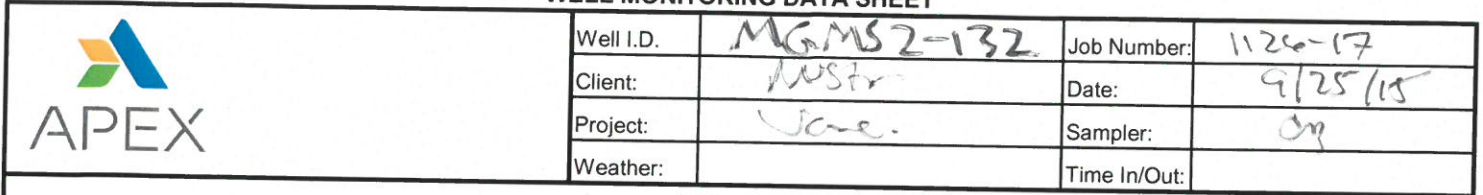 WELL MONITORING DATA SHEET
APEX
Well I.D. MGMS2-132 Job Number: 1126-17
Client: Date: 9/25/15
Project: Sampler:
Weather: Time In/Out: